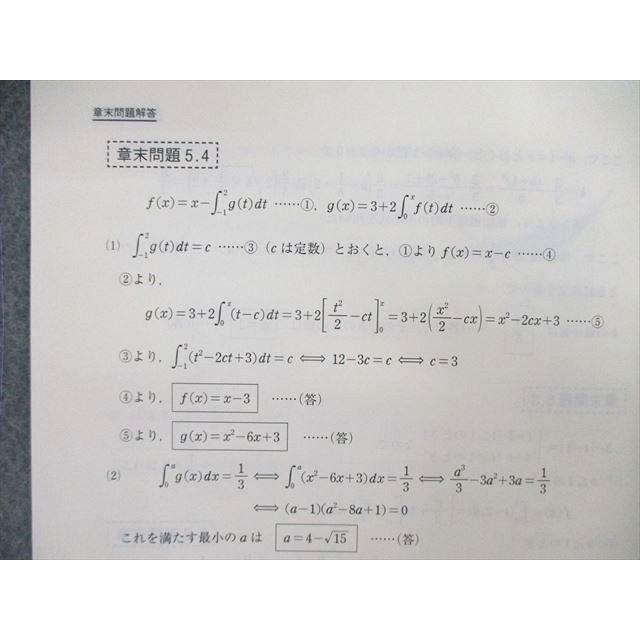 章末問題解答
章末問題 5.4
f(x)=x−∫_{-1}^{2}g(t)dt ……①, g(x)=3+2∫_{0}^{x}f(t)dt ……②
(1) ∫_{-1}^{2}g(t)dt=c ……③ (c は定数) とおくと, ①より f(x)=x−c ……④
②より,
g(x)=3+2∫_{0}^{x}(t−c)dt=3+2[t²/2−ct]_{0}^{x}=3+2(x²/2−cx)=x²−2cx+3 ……⑤
③より, ∫_{-1}^{2}(t²−2ct+3)dt=c ⟺ 12−3c=c ⟺ c=3
④より, f(x)=x−3 ……(答)
⑤より, g(x)=x²−6x+3 ……(答)
(2) ∫_{0}^{a}g(x)dx=1/3 ⟺ ∫_{0}^{a}(x²−6x+3)dx=1/3 ⟺ a³/3−3a²+3a=1/3
⟺ (a−1)(a²−8a+1)=0
これを満たす最小の a は a=4−√15 ……(答)